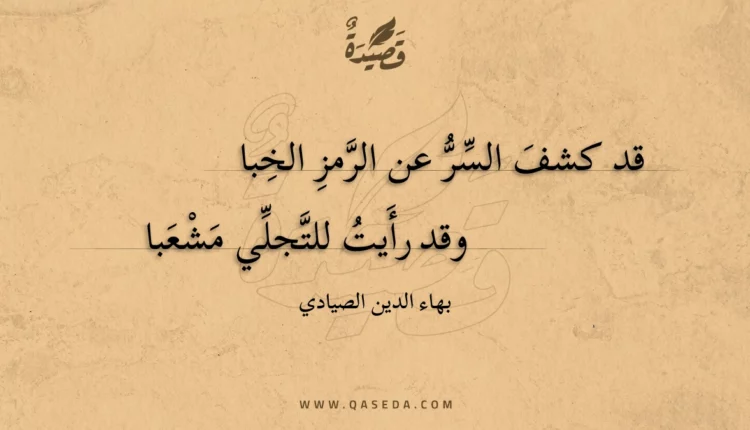 قَصِيدَةٌ
قد كشفَ السِّرُّ عن الرَّمزِ الخِبا
وقد رأَيتُ للتَّجلِّي مَشْعَبا
بهاء الدين الصيادي
WWW.QASEDA.COM